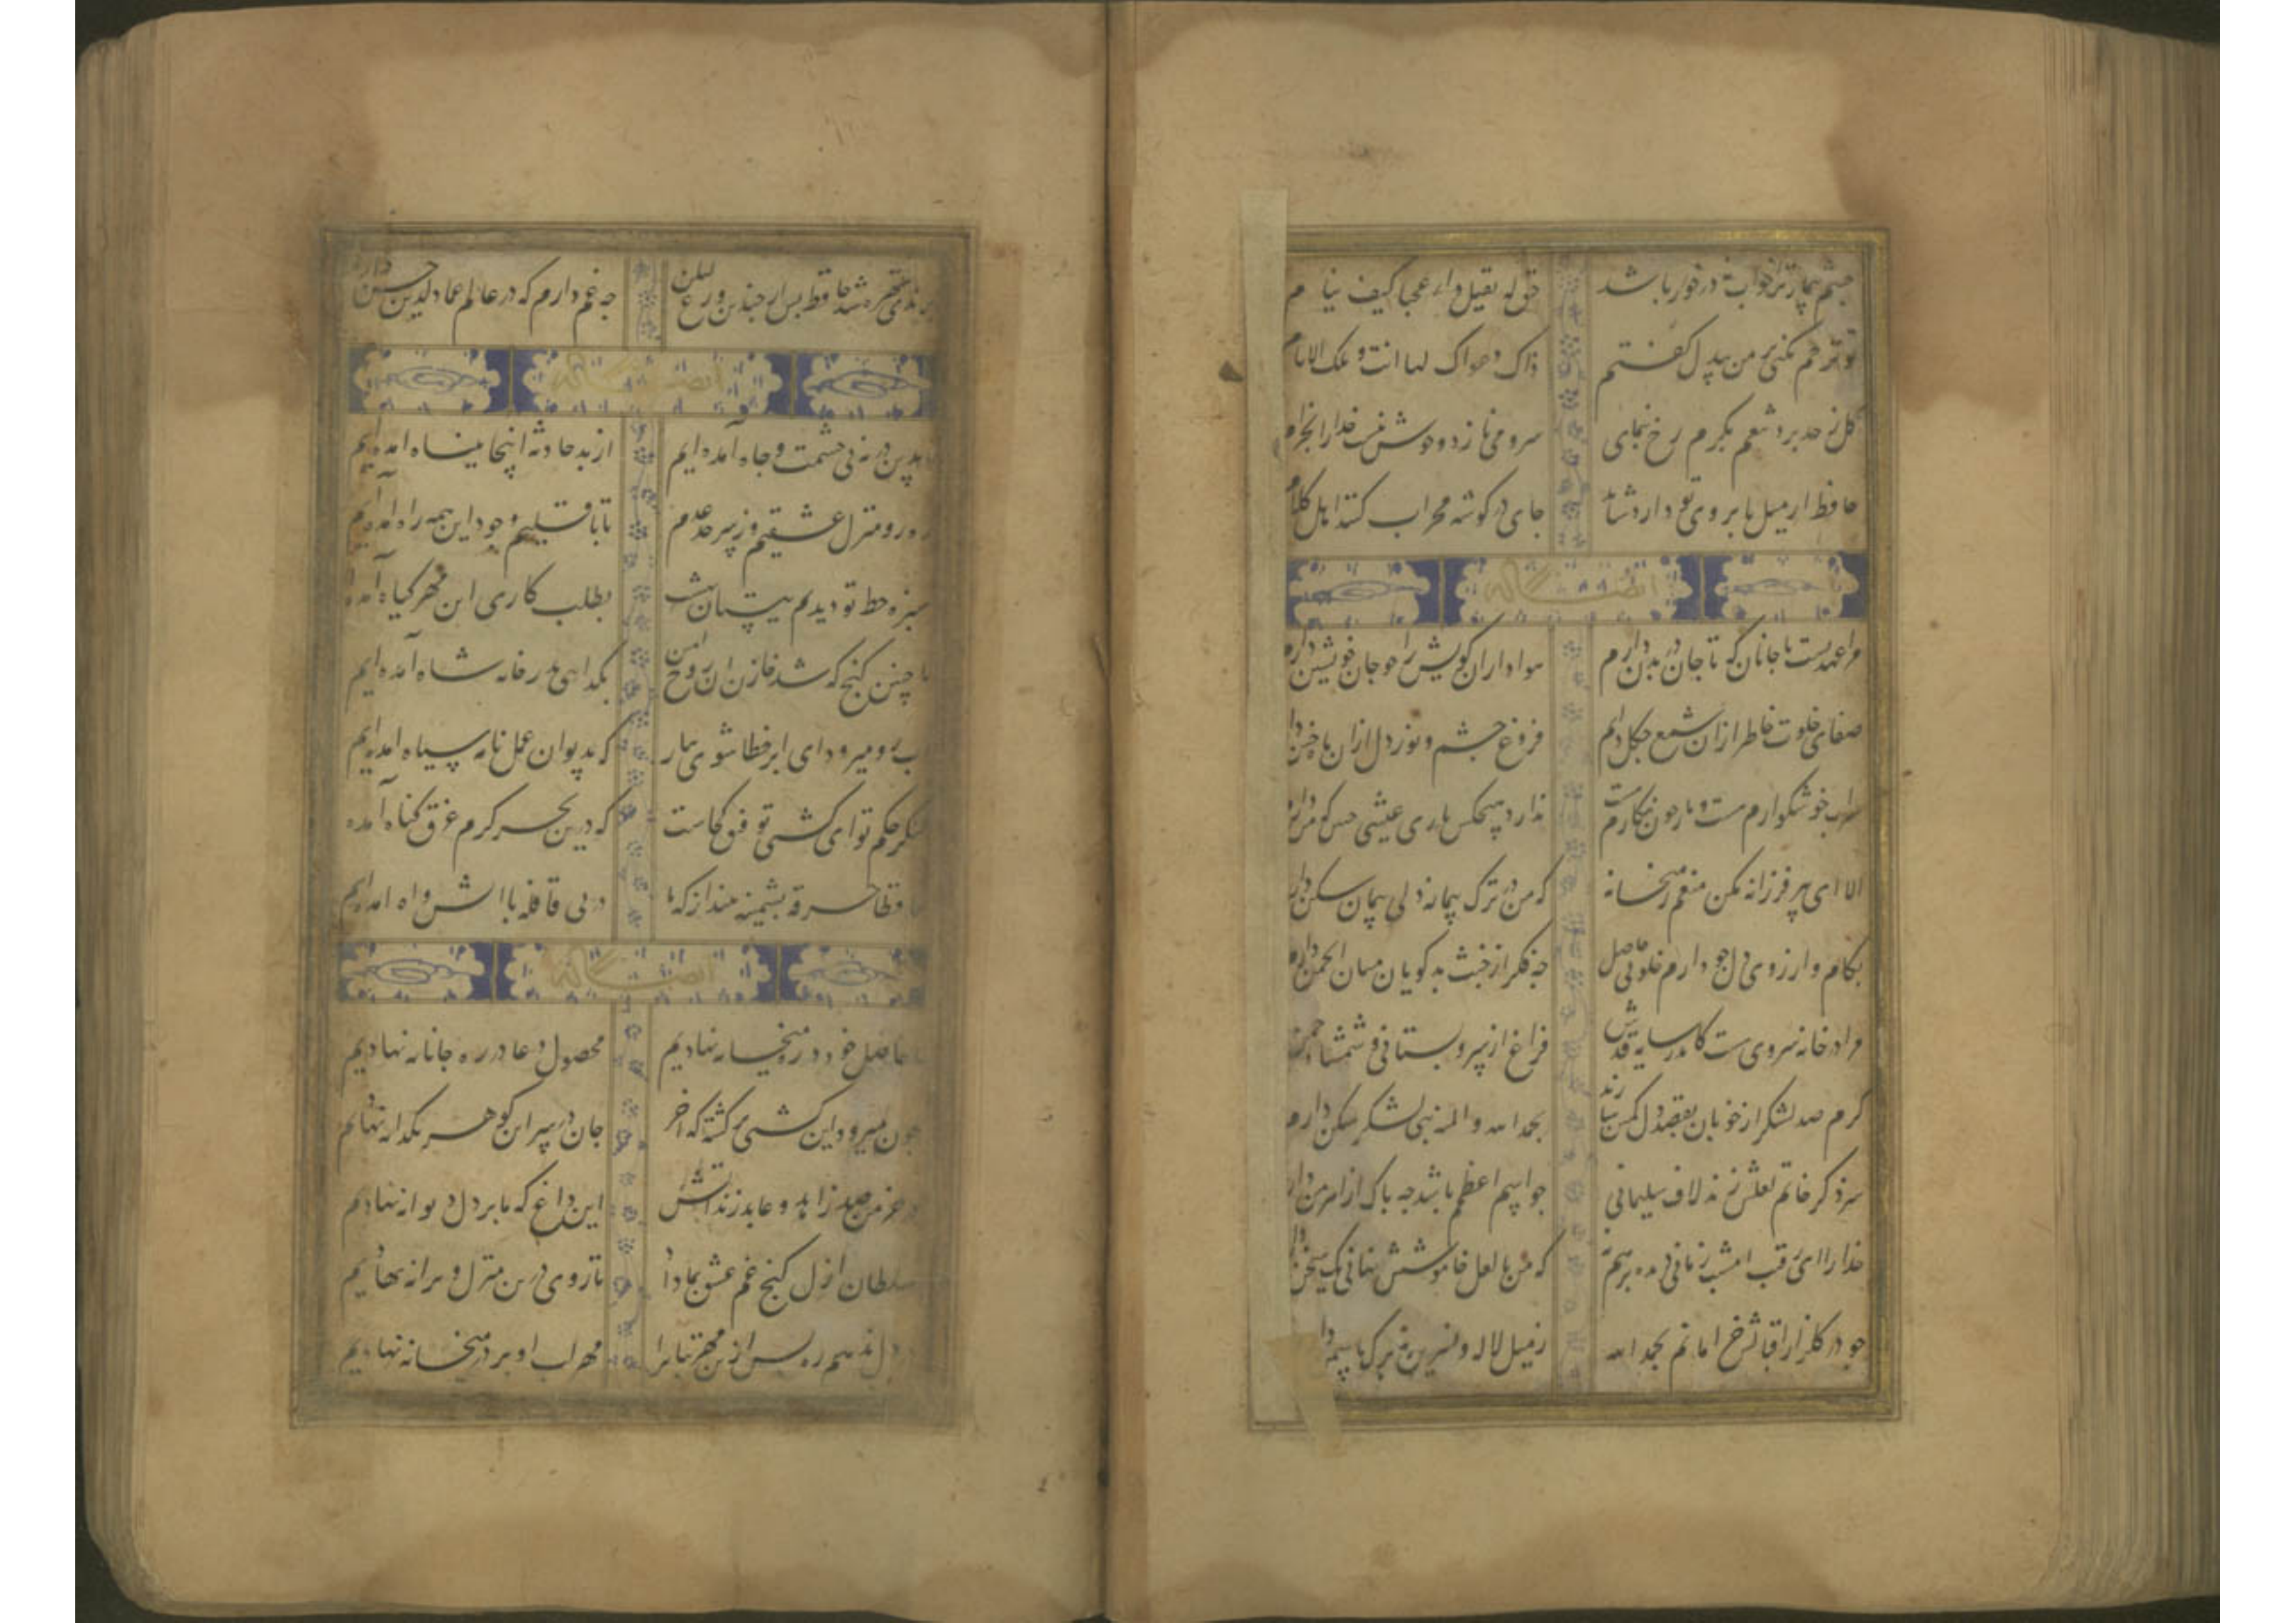 چشم بیمار ترا خواب نه در خور باشد
من له یقتل داء عجبا کیف ینام
تو ترحم نکنی بر من بیدل گفتم
ذاک دعوای وها انت و تلک الایام
گل ز حد برد تنعم بکرم رخ بنمای
سرو می نازد و خوش نیست خدا را بخرام
حافظ ار میل بابروی تو دارد شاید
جای در گوشه محراب کنند اهل کلام
ایضا له
مرا عهدیست با جانان که تا جان در بدن دارم
هواداران کویش را چو جان خویشتن دارم
صفای خلوت خاطر از ان شمع چگل دارم
فروغ چشم و نور دل از ان ماه ختن دارم
شراب خوشگوارم هست و یار چون نگارم هست
ندارد هیچکس یاری عیشی که من دارم
الا ای پیر فرزانه مکن منعم ز میخانه
که من در ترک پیمانه دلی پیمان شکن دارم
بکام و ارزوی دل چو دارم خلوتی حاصل
چه فکر از خبث بدگویان میان انجمن دارم
مرا در خانه سروی هست کاندر سایه قدش
فراغ از سرو بستانی و شمشاد چمن
گرم صد لشکر از خوبان بقصد دل کمین سازند
بحمد الله و المنه بتی لشکر شکن دارم
سزد کز خاتم لعلش زنم لاف سلیمانی
چو اسم اعظم باشد چه باک از اهرمن دارم
خدا را ای رقیب امشب زمانی دیده بر هم نه
که من با لعل خاموشش نهانی یک سخن دارم
چو در گلزار اقبالش خرامانم بحمد الله
نه میل لاله و نسرین نه برگ یاسمن دارم
برندی شهره شد حافظ پس از چندین ورع لیکن
چه غم دارم که در عالم عماد الدین حسن دارم
ایضا له
ما بدین در نه پی حشمت و جاه آمده ایم
از بد حادثه اینجا بپناه امده ایم
ره رو منزل عشقیم و ز سر حد عدم
تا باقلیم وجود این همه راه امده ایم
سبزه خط تو دیدیم ز بستان بهشت
بطلب کاری این مهر گیاه آمده
با چنین گنج که شد خازن ان روح امین
بگدایی بدر خانه شاه آمده ایم
اب رو میرود ای ابر خطا شوی ببار
که بدیوان عمل نامه سیاه امده ایم
لنگر حکم تو ای کشتی توفیق کجاست
که درین بحر کرم غرق گناه آمده
حافظ خرقه پشمینه بینداز که ما
در پی قافله با اتش و اه امده ایم
ایضا له
ما حاصل خود در ره میخانه نهادیم
محصول دعا در ره جانانه نهادیم
چون میرود این کشتی گشته که اخر
جان در سر ان گوهر یکدانه نهادیم
در خرمن صد زاهد و عابد زند اتش
این داغ که ما بر دل دیوانه نهادیم
سلطان ازل گنج غم عشق بما داد
تا روی درین منزل ویرانه نهادیم
در دل ندهم ره پس ازین مهر بتانرا
مهر لب او بر در میخانه نهادیم